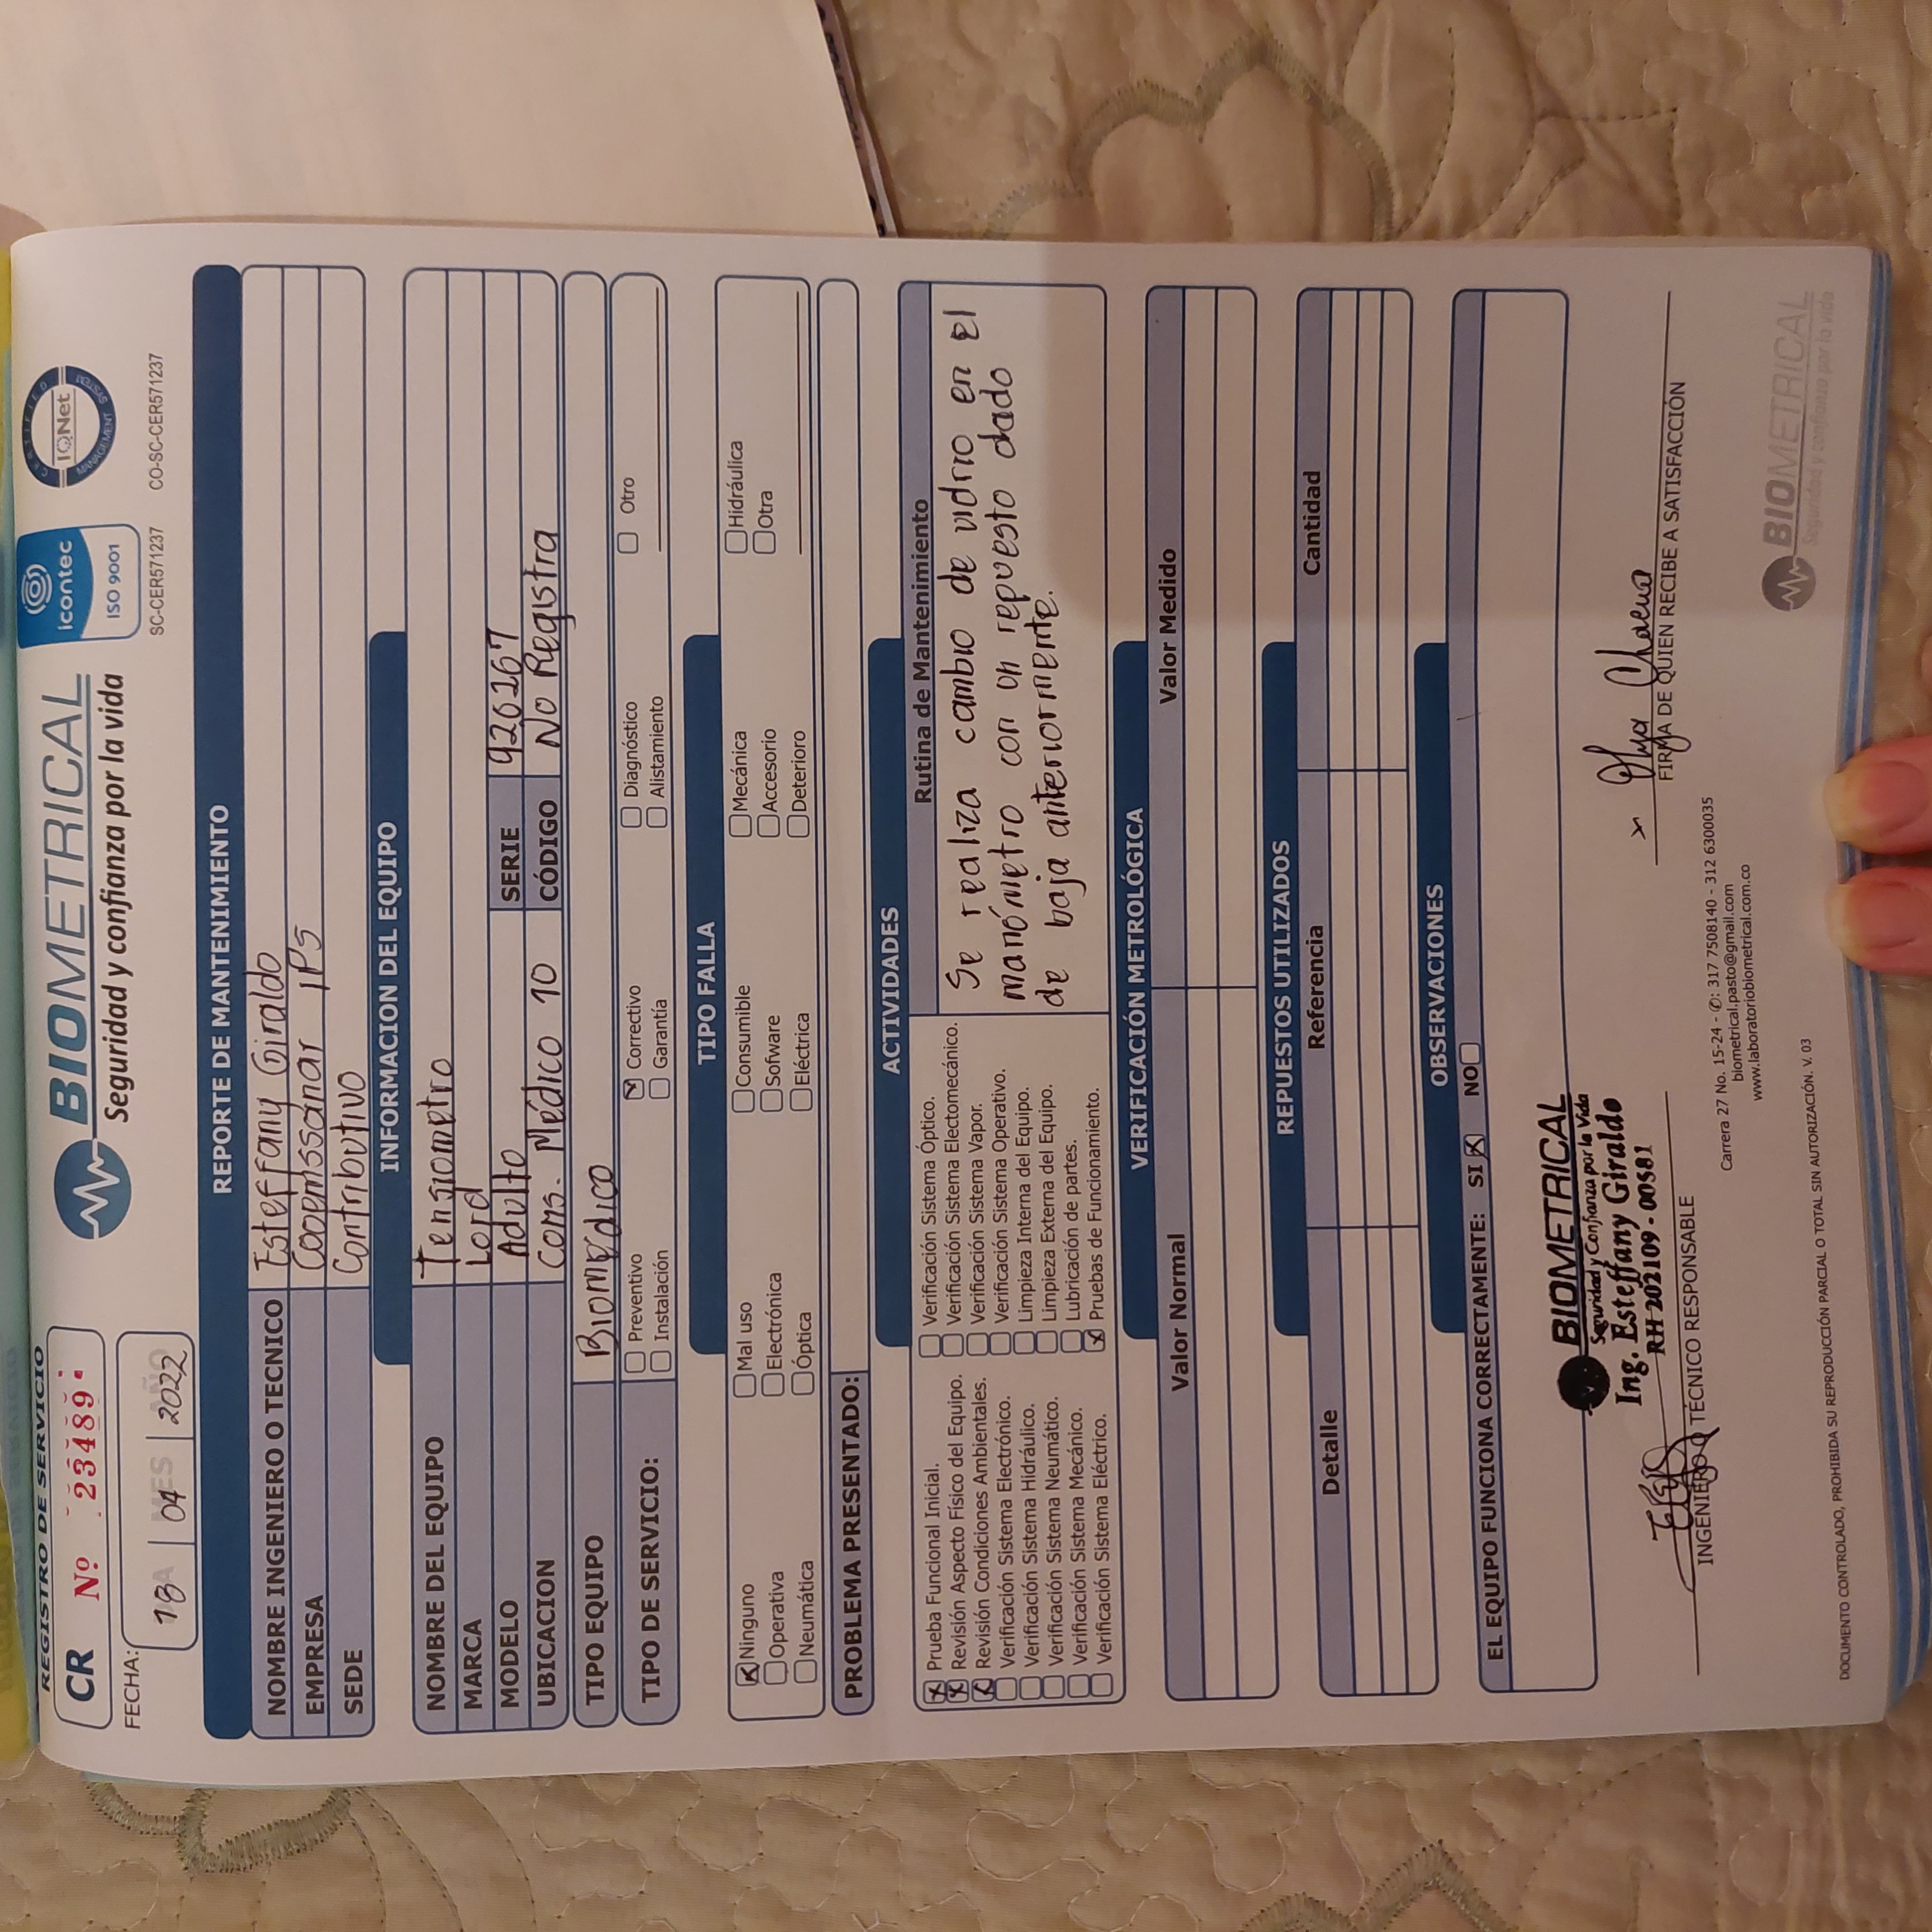 REGISTRO DE SERVICIO
CR Nº 23489
FECHA:
DIA MES AÑO
18 04 2022
BIOMETRICAL
Seguridad y confianza por la vida
icontec
ISO 9001
SC-CER571237
CERTIFIED
IQNet
MANAGEMENT SYSTEM
CO-SC-CER571237
REPORTE DE MANTENIMIENTO
NOMBRE INGENIERO O TECNICO Esteffany Giraldo
EMPRESA Coopmssanar IPS
SEDE Contributivo
INFORMACION DEL EQUIPO
NOMBRE DEL EQUIPO Tensiometro
MARCA Lord
MODELO Adulto SERIE 926267
UBICACION Cons. Médico 10 CÓDIGO No Registra
TIPO EQUIPO Biomédico
TIPO DE SERVICIO:
Preventivo Correctivo Diagnóstico Otro
Instalación Garantía Alistamiento
TIPO FALLA
Ninguno Mal uso Consumible Mecánica Hidráulica
Operativa Electrónica Sofware Accesorio Otra
Neumática Óptica Eléctrica Deterioro
PROBLEMA PRESENTADO:
ACTIVIDADES
Prueba Funcional Inicial.
Revisión Aspecto Físico del Equipo.
Revisión Condiciones Ambientales.
Verificación Sistema Electrónico.
Verificación Sistema Hidráulico.
Verificación Sistema Neumático.
Verificación Sistema Mecánico.
Verificación Sistema Eléctrico.
Verificación Sistema Óptico.
Verificación Sistema Electomecánico.
Verificación Sistema Vapor.
Verificación Sistema Operativo.
Limpieza Interna del Equipo.
Limpieza Externa del Equipo.
Lubricación de partes.
Pruebas de Funcionamiento.
Rutina de Mantenimiento
Se realiza cambio de vidrio en el
manómetro con un repuesto dado
de baja anteriormente.
VERIFICACIÓN METROLÓGICA
Valor Normal Valor Medido
REPUESTOS UTILIZADOS
Detalle Referencia Cantidad
OBSERVACIONES
EL EQUIPO FUNCIONA CORRECTAMENTE: SI NO
BIOMETRICAL
Seguridad y Confianza por la Vida
Ing. Esteffany Giraldo
RH 202109 - 00581
INGENIERO O TÉCNICO RESPONSABLE
Olga
FIRMA DE QUIEN RECIBE A SATISFACCIÓN
Carrera 27 No. 15-24 - ✆: 317 7508140 - 312 6300035
biometrical.pasto@gmail.com
www.laboratoriobiometrical.com.co
BIOMETRICAL
Seguridad y confianza por la vida
DOCUMENTO CONTROLADO, PROHIBIDA SU REPRODUCCIÓN PARCIAL O TOTAL SIN AUTORIZACIÓN. V. 03